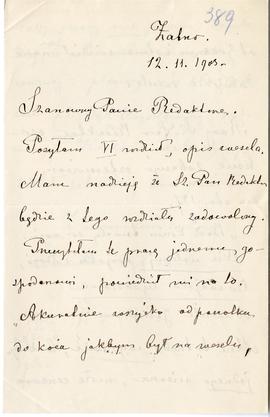 389
12. 11. 1903.
Szanowny Panie Redaktorze.
Posyłam VI rozdział, opis wesela.
Mam nadzieję że Sz. Pan Redaktor
będzie z tego rozdziału zadowolony.
Przeczytałem tę pracę jednemu go-
spodarzowi, powiedział mi na to.
"Akuratnie wszystko od początku
do końca jakbym był na weselu,